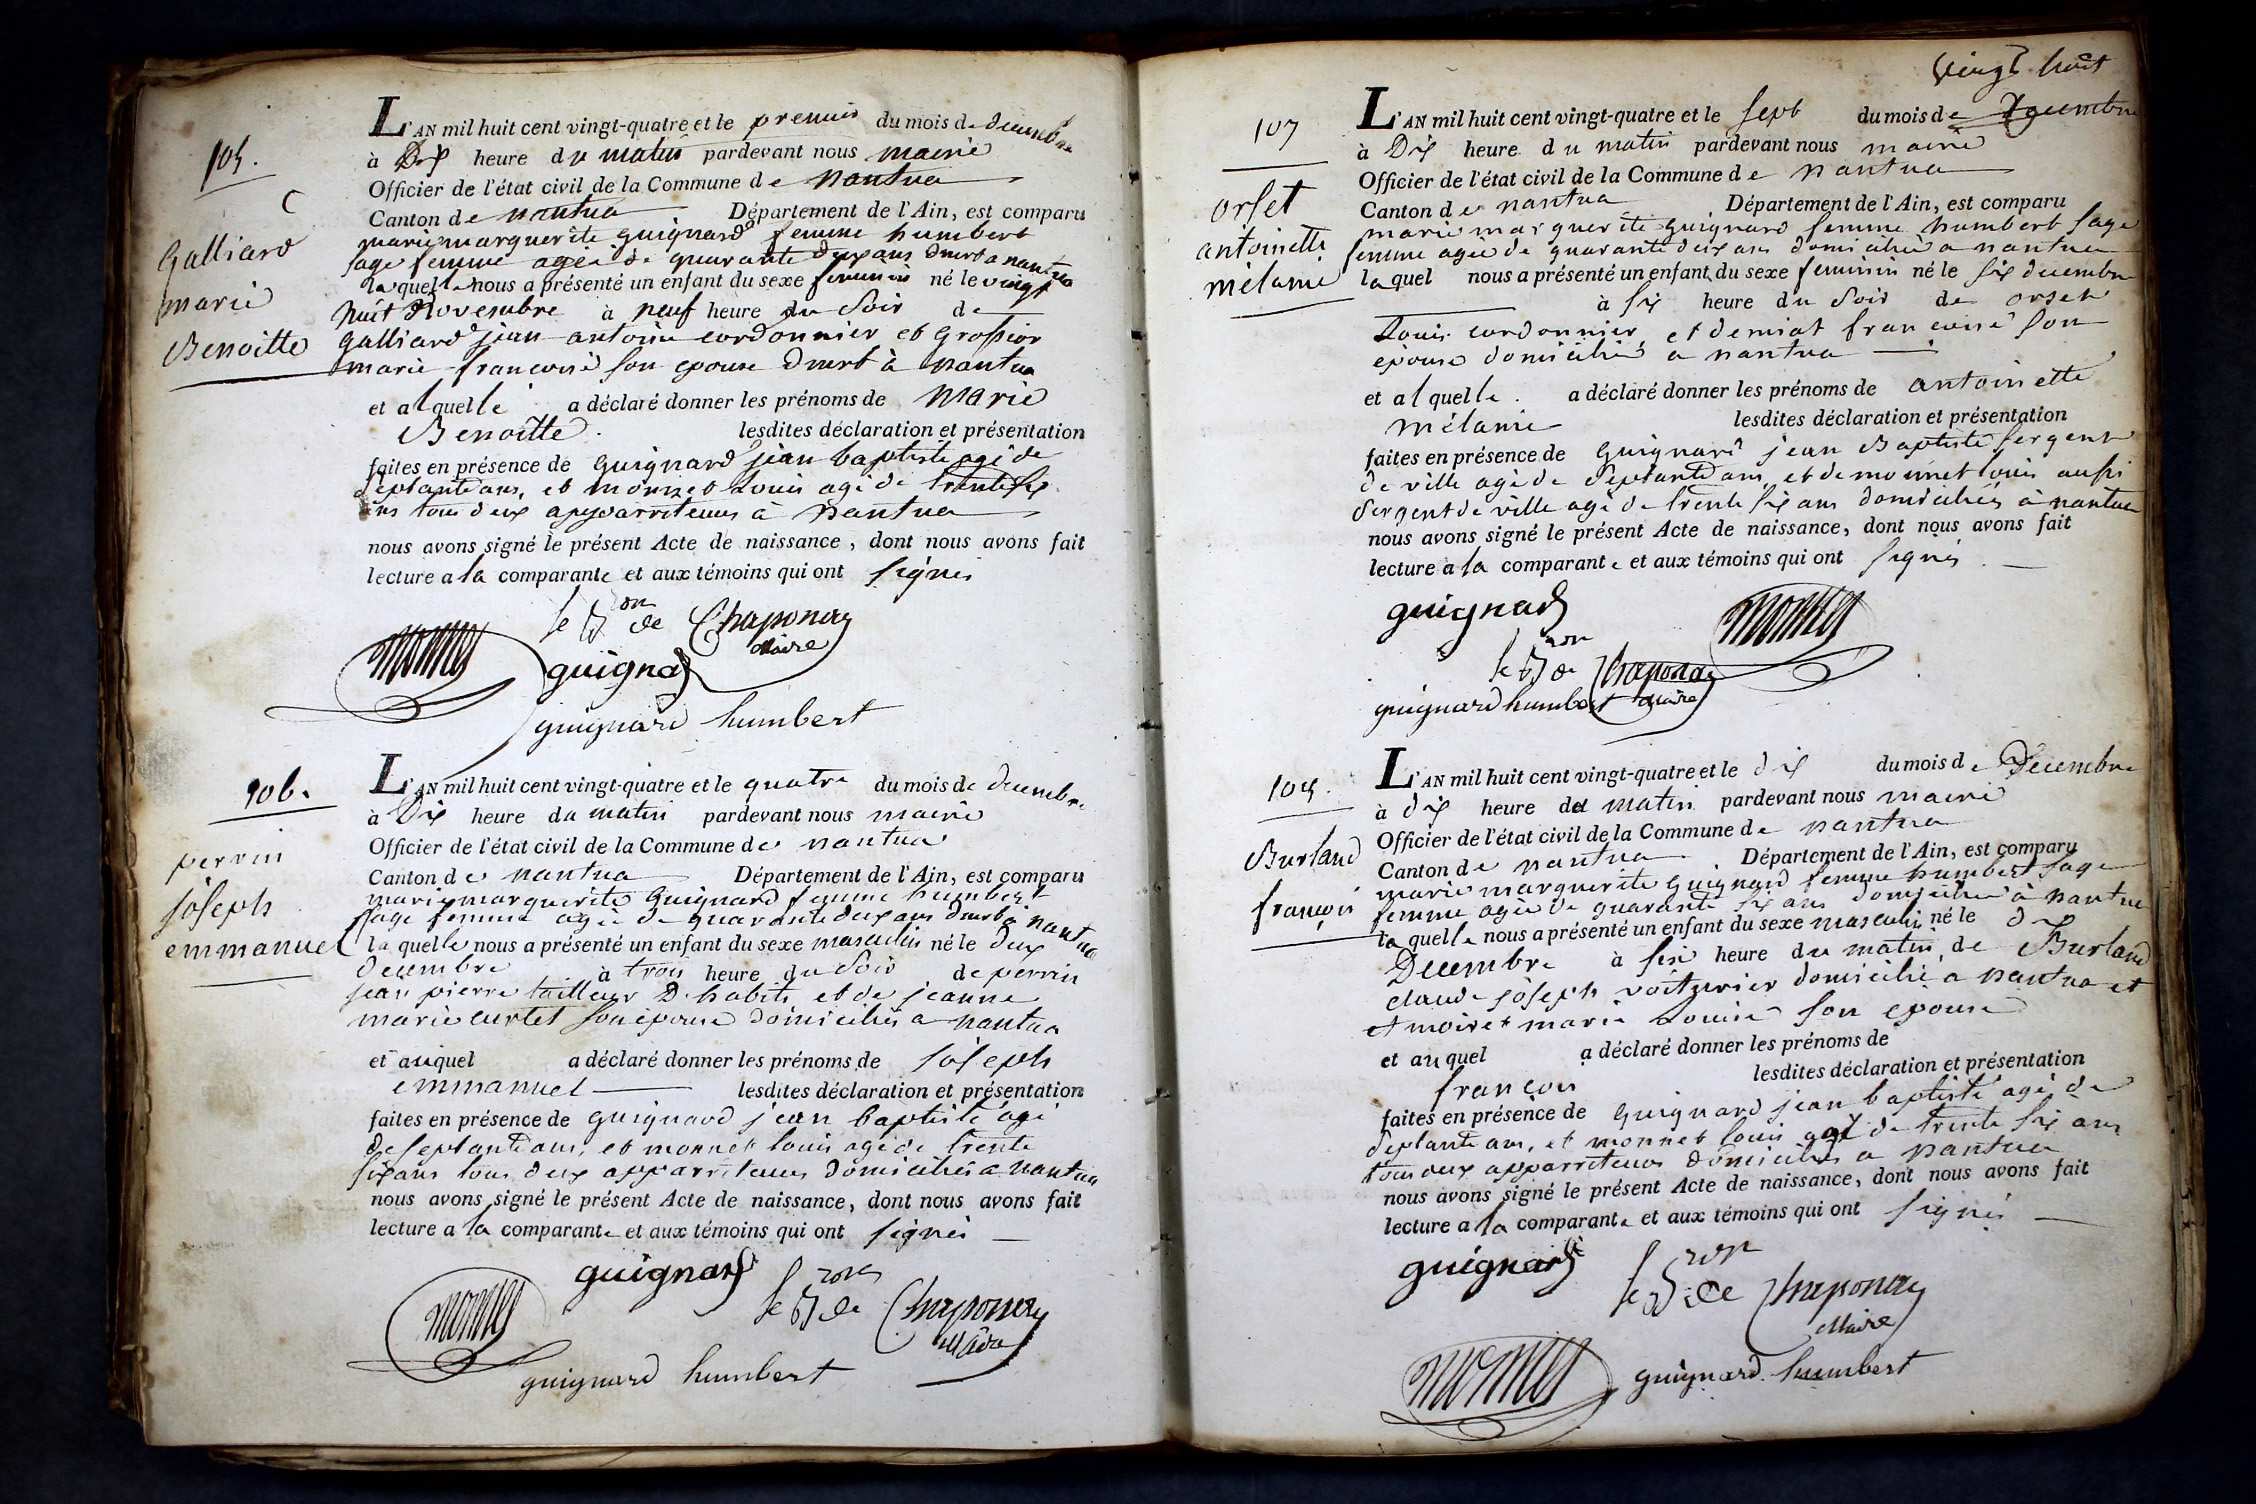 105.
Galliard
marie
Benoitte
L'AN mil huit cent vingt-quatre et le premier du mois de decembre
à Dix heure du matin pardevant nous maire
Officier de l'état civil de la Commune de nantua
Canton de nantua Département de l'Ain, est comparu
marie marguerite guignard femme humbert
sage femme agée de quarante deux ans dmrt a nantua
laquelle nous a présenté un enfant du sexe feminin né le vingt
huit Novembre à neuf heure du Soir de
Galliard jean antoine cordonnier et Grossior
marie francoise son epouse dmrt à nantua
et alquelle a déclaré donner les prénoms de Marie
Benoitte lesdites déclaration et présentation
faites en présence de guignard jean baptiste agé de
septante ans, et monnet Louis agé de trente six
ans tous deux apparriteurs à nantua
nous avons signé le présent Acte de naissance, dont nous avons fait
lecture a la comparante et aux témoins qui ont signés
le Bon de Chaponay
Maire
monnet
guignard
guignard humbert
106.
perrin
joseph
emmanuel
L'AN mil huit cent vingt-quatre et le quatre du mois de decembre
à Dix heure du matin pardevant nous maire
Officier de l'état civil de la Commune de nantua
Canton de nantua Département de l'Ain, est comparu
marie marguerite Guignard femme humbert
sage femme agée de quarante deux ans dmrt a nantua
laquelle nous a présenté un enfant du sexe masculin né le deux
decembre à trois heure du Soir de perrin
jean pierre tailleur D'habits et de jeanne
marie curtet son épouse domiciliés a nantua
et auquel a déclaré donner les prénoms de joseph
emmanuel lesdites déclaration et présentation
faites en présence de guignard jean baptiste agé
de septante ans, et monnet louis agé de trente
six ans tous deux apparriteurs domiciliés a nantua
nous avons signé le présent Acte de naissance, dont nous avons fait
lecture a la comparante et aux témoins qui ont signés
guignard
le Bon de Chaponay
Maire
monnet
guignard humbert
vingt huit
107
orset
antoinette
mélanie
L'AN mil huit cent vingt-quatre et le sept du mois de Decembre
à Dix heure du matin pardevant nous maire
Officier de l'état civil de la Commune de nantua
Canton de nantua Département de l'Ain, est comparu
marie marguerite guignard femme humbert sage
femme agée de quarante deux ans domiciliée a nantua
laquel nous a présenté un enfant du sexe feminin né le six decembre
à six heure du Soir de orset
Louis cordonnier, et demiat francoise son
epouse domiciliés a nantua
et alquelle a déclaré donner les prénoms de antoinette
mélanie lesdites déclaration et présentation
faites en présence de Guignard jean Baptiste sergent
de ville agé de septante ans, et de monnet louis aussi
sergent de ville agé de trente six ans domiciliés à nantua
nous avons signé le présent Acte de naissance, dont nous avons fait
lecture a la comparante et aux témoins qui ont signés
guignard
monnet
le Bon de Chaponay
guignard humbert Maire
108.
Burland
françois
L'AN mil huit cent vingt-quatre et le dix du mois de Decembre
à dix heure du matin pardevant nous maire
Officier de l'état civil de la Commune de nantua
Canton de nantua Département de l'Ain, est comparu
marie marguerite guignard femme humbert sage
femme agée de quarante six ans domiciliée à nantua
laquelle nous a présenté un enfant du sexe masculin né le dix
Decembre à six heure du matin de Burland
claude joseph voiturier domicilié a nantua et
et moiret marie Louise son epouse
et auquel a déclaré donner les prénoms de
françois lesdites déclaration et présentation
faites en présence de guignard jean baptiste agé de
septante ans, et monnet louis agé de trente six ans
tous deux apparriteurs domiciliés a nantua
nous avons signé le présent Acte de naissance, dont nous avons fait
lecture a la comparante et aux témoins qui ont signés
guignard
le Bon de Chaponay
Maire
monnet
guignard humbert